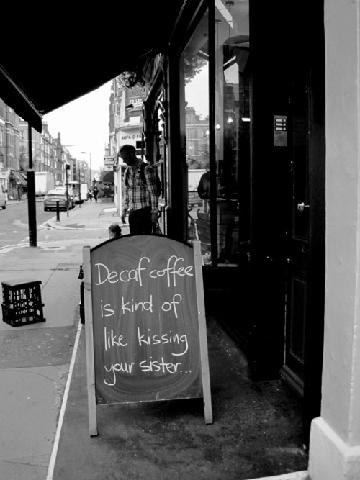 Decaf coffee
is kind of
like kissing
your sister...